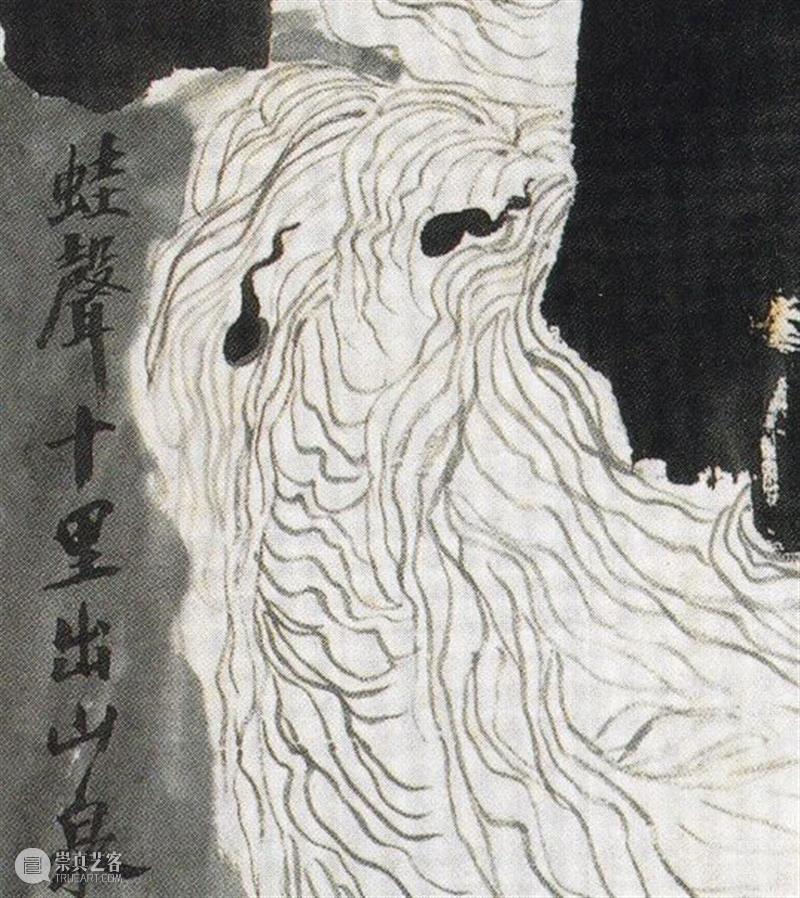 蛙聲十里出山泉
崇真艺客
TRUEART.COM